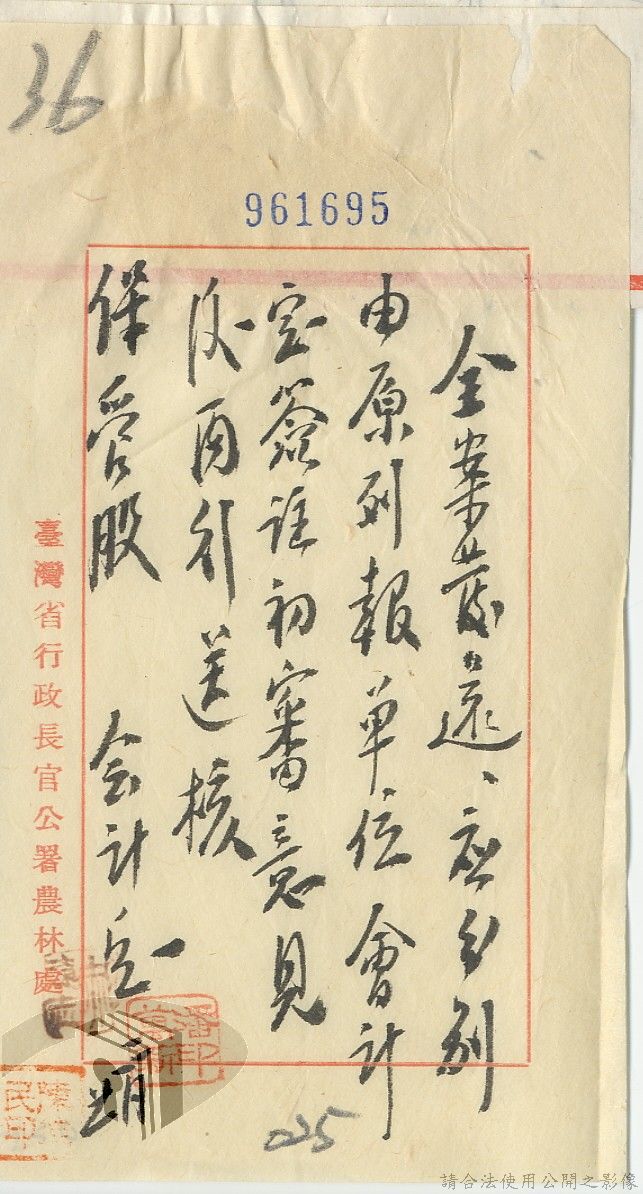 36
961695
全案發還、应分别
由原列報单位會計
室簽註初審意見
後再行送核
保管股 会計室
臺灣省行政長官公署農林處
225
請合法使用公開之影像